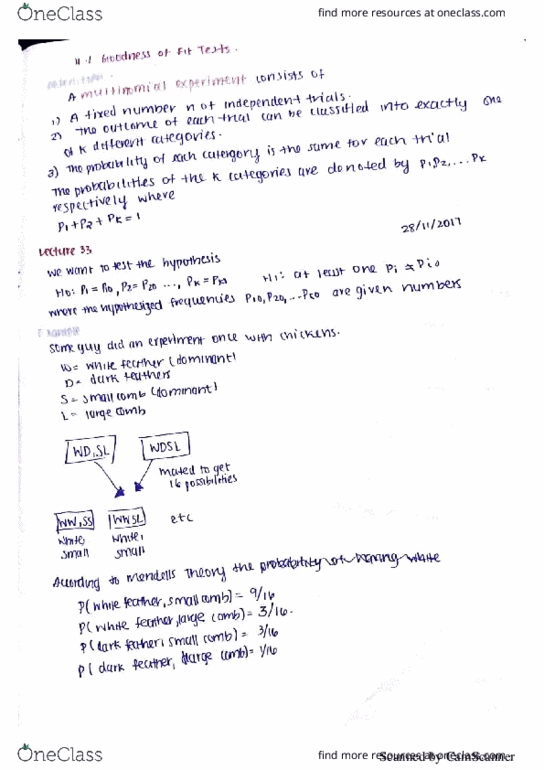 OneClass
find more resources at oneclass.com
11.1 Goodness of Fit Tests.
A multinomial experiment consists of
1) A fixed number n of independent trials.
2) The outcome of each trial can be classified into exactly one
of K different categories.
3) The probability of each category is the same for each trial
The probabilities of the K categories are denoted by P1,P2,... PK
respectively where
P1+P2+PK=1
28/11/2017
Lecture 33
We want to test the hypothesis
H0: P1 = P10, P2= P20 ..., PK = PK0 H1: at least one Pi ≠ Pi0
where the hypothesized frequencies P10, P20,...PK0 are given numbers
Example
Some guy did an experiment once with chickens.
W= white feather (dominant)
D= dark feathers
S= small comb (dominant)
L= large comb
WD,SL WDSL
mated to get
16 possibilities
WW,SS WWSL etc
white white,
small small
According to mendells Theory the probability of having white
P(white feather, small comb) = 9/16
P(white feather, large comb) = 3/16.
P(dark feather, small comb) = 3/16
P( dark feather, large comb)= 1/16
OneClass
find more resources at oneclass.com
Scanned by CamScanner